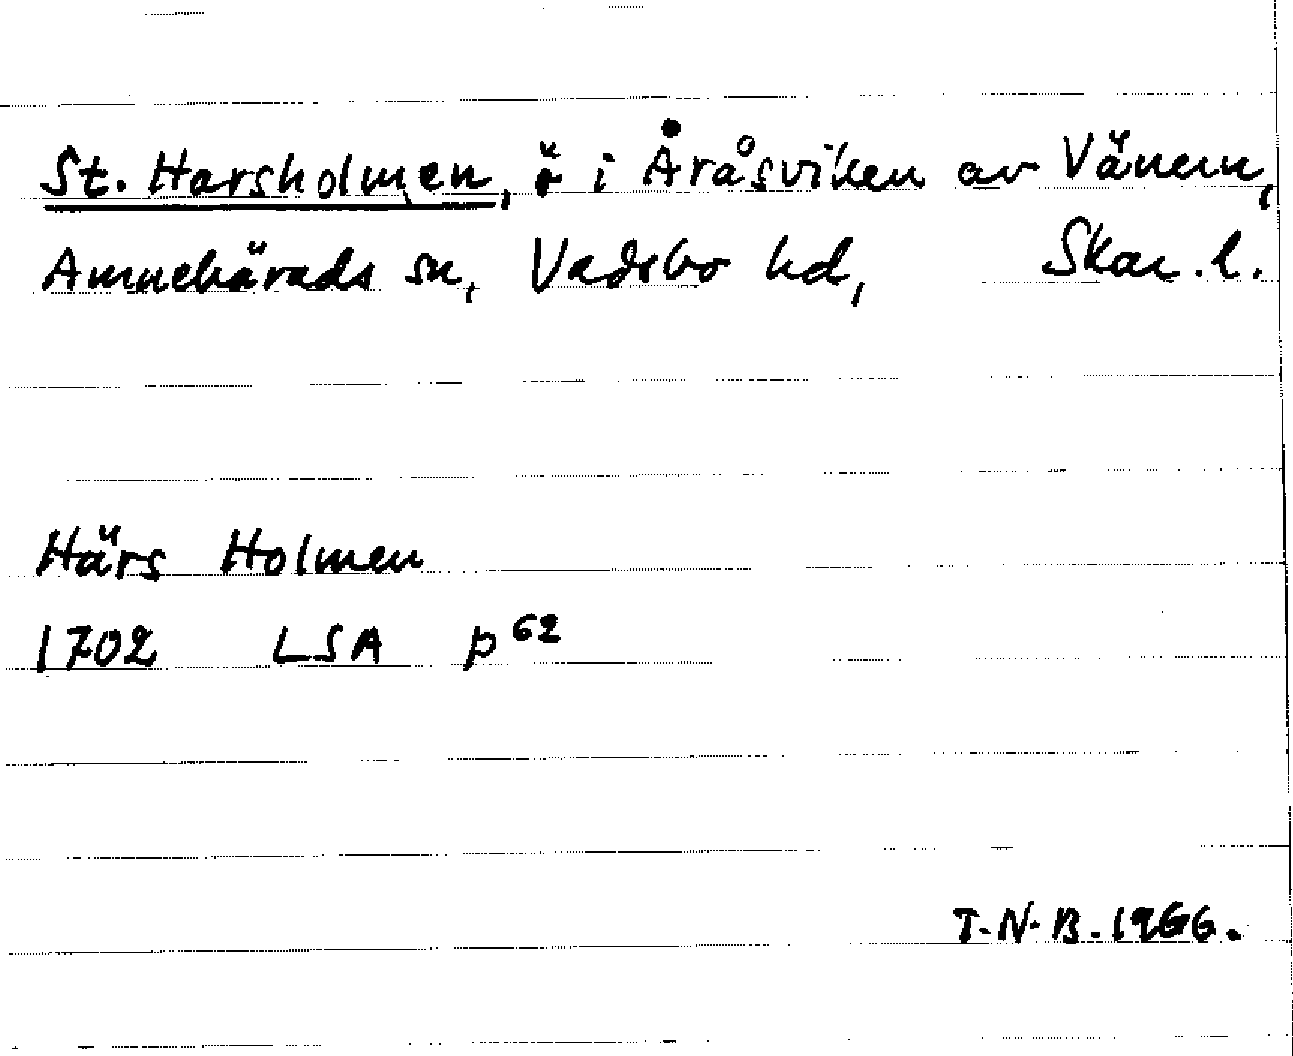 St. Harsholmen, ö i Åråsviken av Vänern,
Amnehärads sn, Vadsbo hd, Skar. l.
Härs Holmen
1702 LSA p 62
T.N.B. 1966.